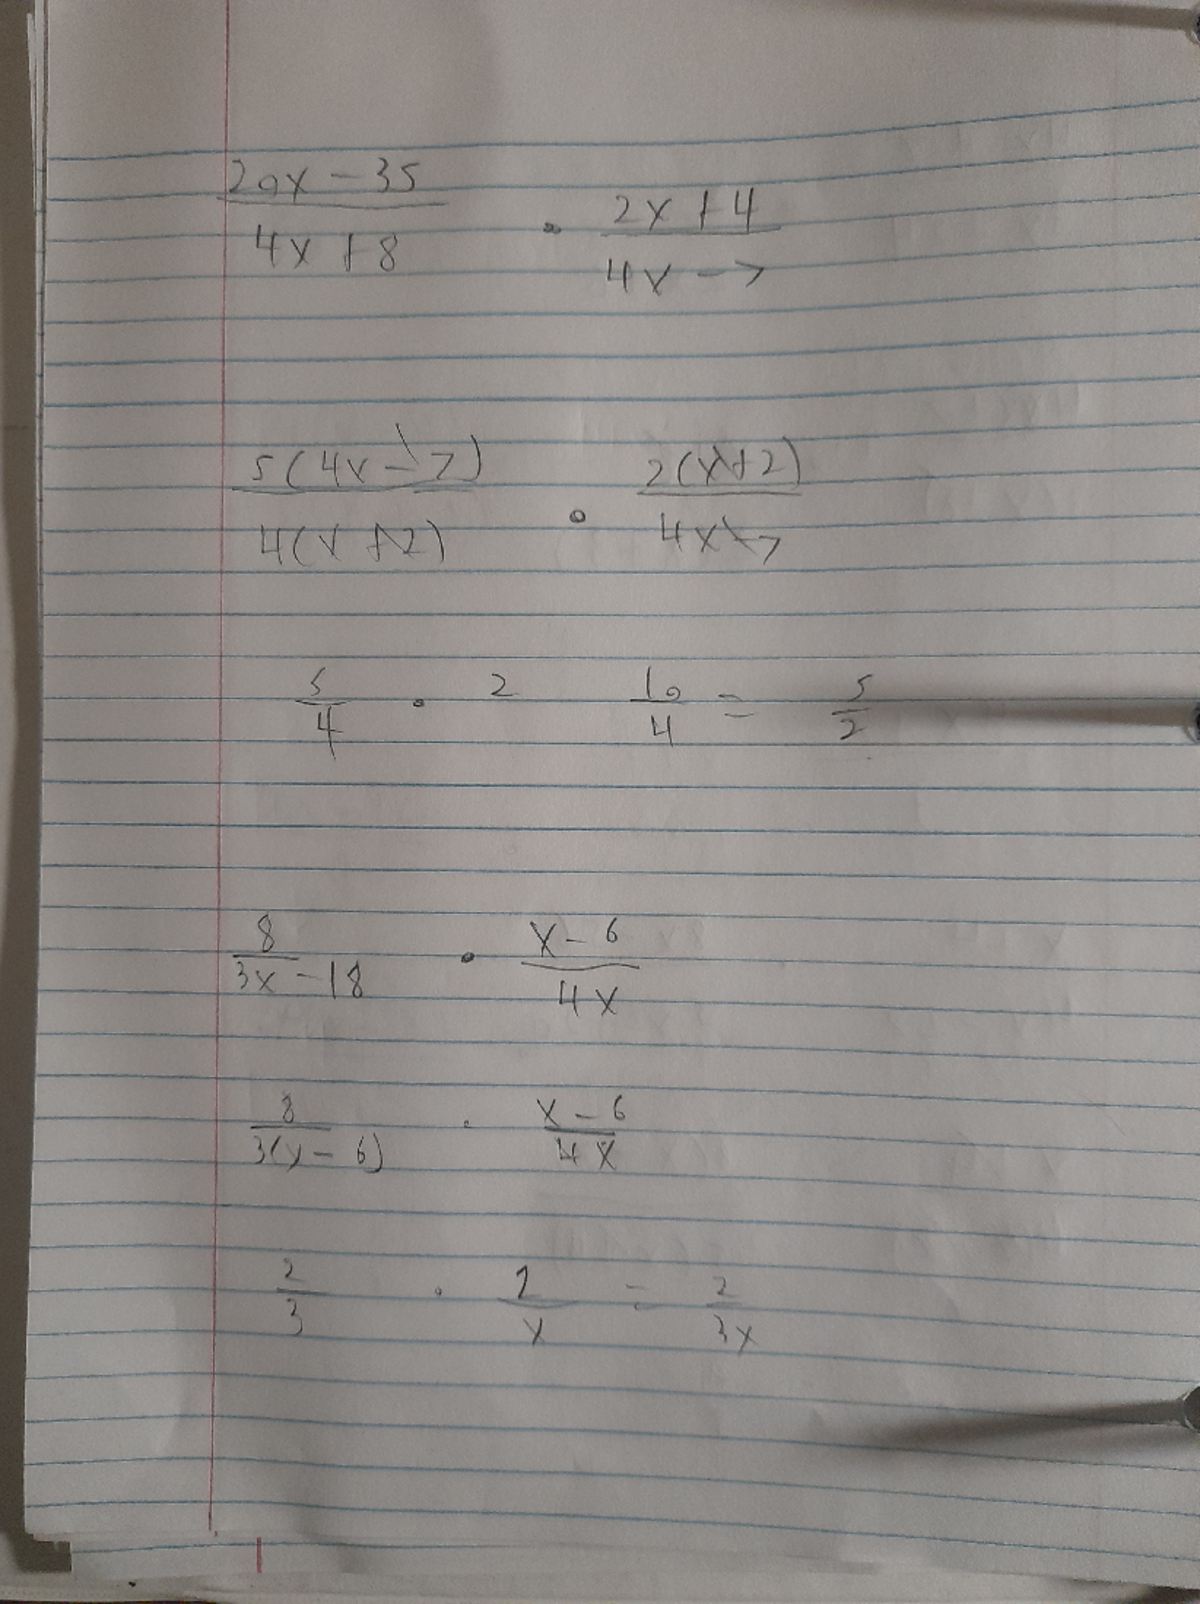 20x - 35 / 4x + 8 · 2x + 4 / 4x - 7
5(4x - 7) / 4(x + 2) · 2(x + 2) / 4x - 7
5/4 · 2 10/4 = 5/2
8 / 3x - 18 · x - 6 / 4x
8 / 3(x - 6) · x - 6 / 4x
2/3 · 1/x = 2/3x